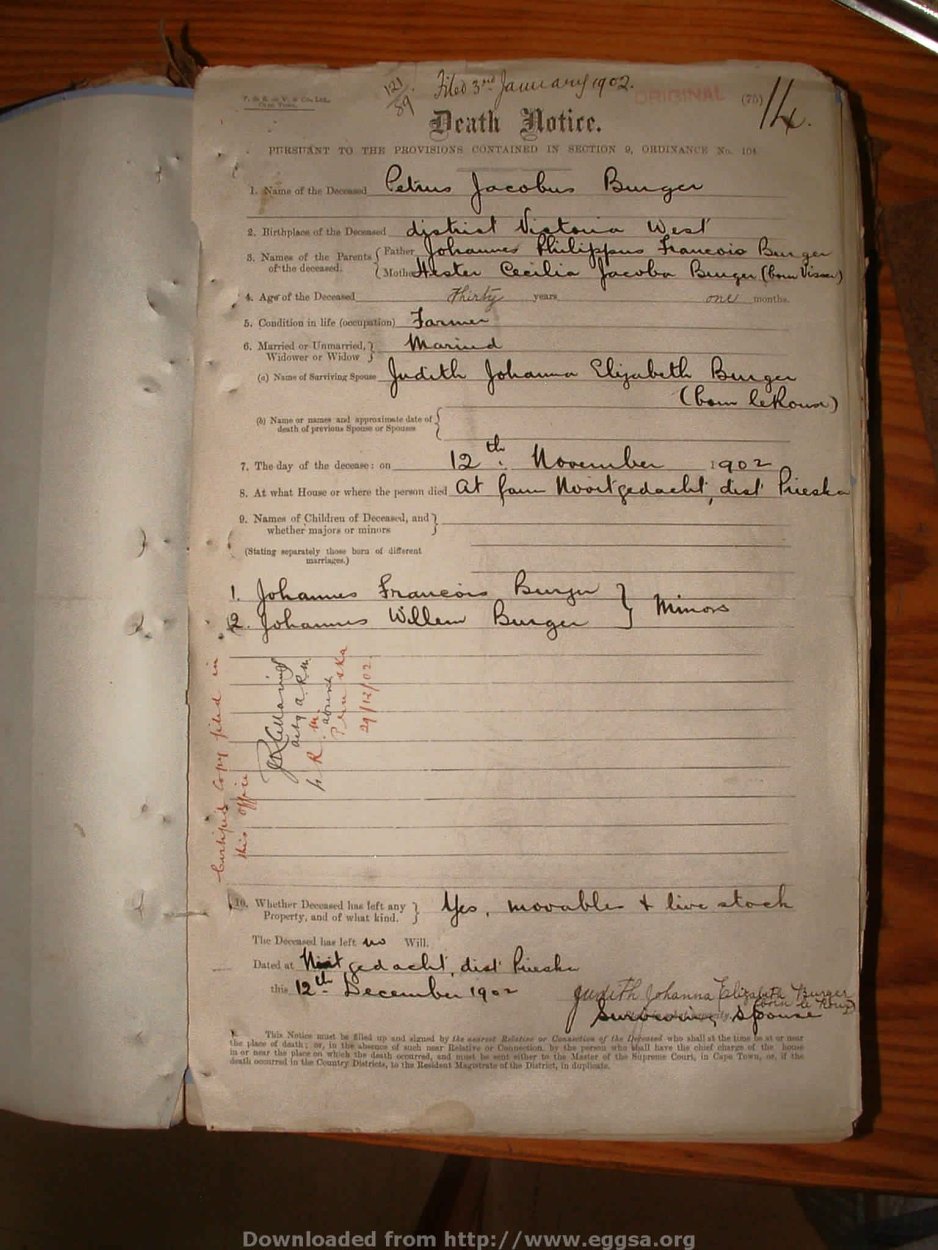 121/89 Filed 3rd January 1902.
ORIGINAL (75) 14.
Death Notice.
PURSUANT TO THE PROVISIONS CONTAINED IN SECTION 9, ORDINANCE No. 104
1. Name of the Deceased Petrus Jacobus Burger
2. Birthplace of the Deceased district Victoria West
3. Names of the Parents of the deceased. Father Johannes Philippus Francois Burger
Mother Hester Cecilia Jacoba Burger (born Visser)
4. Age of the Deceased Thirty years one months.
5. Condition in life (occupation) Farmer
6. Married or Unmarried, Widower or Widow Married
(a) Name of Surviving Spouse Judith Johanna Elizabeth Burger
(born le Roux)
(b) Name or names and approximate date of
death of previous Spouse or Spouses
7. The day of the decease: on 12th November 1902
8. At what House or where the person died At farm Nooitgedacht, dist Prieska
9. Names of Children of Deceased, and
whether majors or minors
(Stating separately those born of different
marriages.)
1. Johannes Francois Burger
2. Johannes Willem Burger } Minors
Certified Copy filed in
this office
actg A.R.M.
R. M.
absent
Prieska
29/12/02.
10. Whether Deceased has left any
Property, and of what kind. } Yes, movables + live stock
The Deceased has left no Will.
Dated at Nooitgedacht, dist Prieska
this 12th December 1902 Judith Johanna Elizabeth Burger
(born le Roux)
Surviving Spouse
This Notice must be filled up and signed by the nearest Relative or Connection of the Deceased who shall at the time be at or near
the place of death; or, in the absence of such near Relative or Connection, by the person who shall have the chief charge of the house
in or near the place on which the death occurred, and must be sent either to the Master of the Supreme Court, in Cape Town, or, if the
death occurred in the Country Districts, to the Resident Magistrate of the District, in duplicate.
Downloaded from http://www.eggsa.org